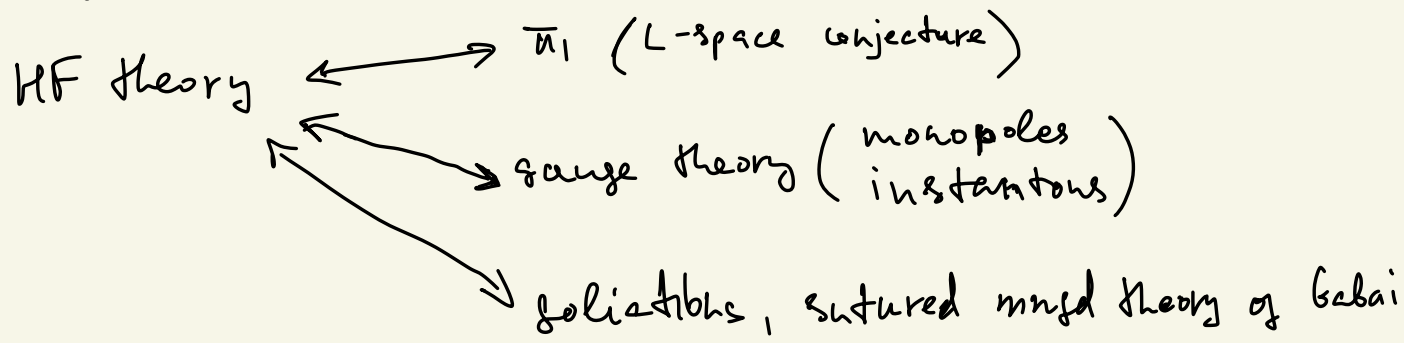 HF theory
π₁ (L-space conjecture)
gauge theory (monopoles
instantons)
foliations, sutured mnfd theory of Gabai